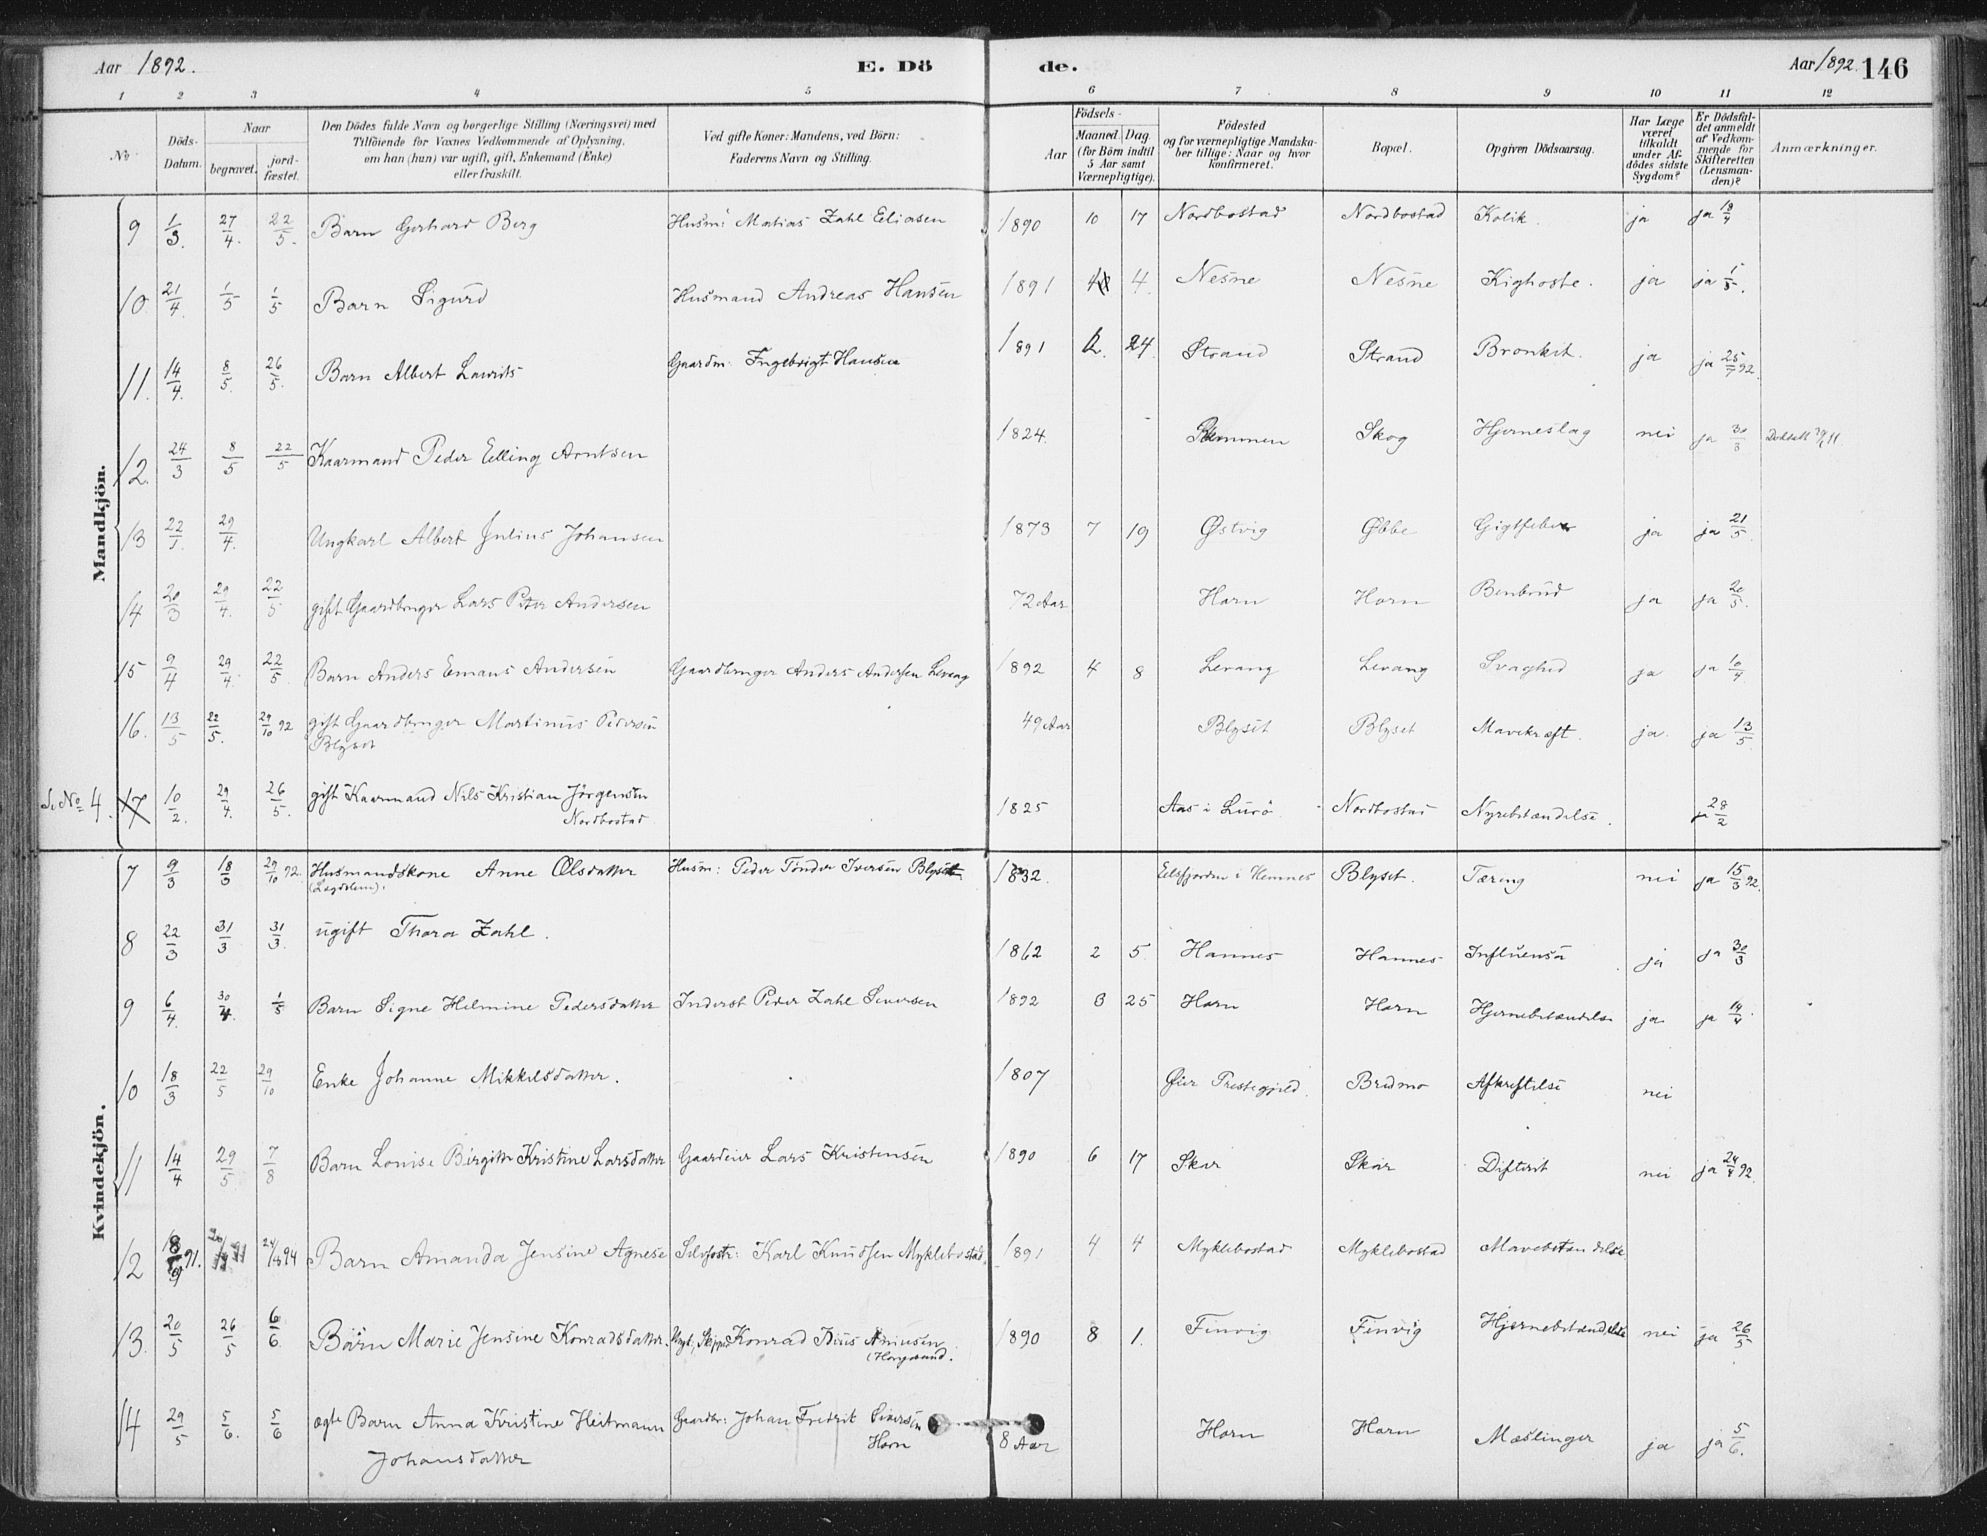 Aar 1892. E. Dö de. Aar 1892. 146
1 2 3 4 5 6 7 8 9 10 11 12
No Döds-Datum. Naar begravet. jord-fæstet. Den Dödes fulde Navn og borgerlige Stilling (Næringsvei) med Tilföiende for Voxnes Vedkommende af Oplysning, om han (hun) var ugift, gift, Enkemand (Enke) eller fraskilt. Ved gifte Koner: Mandens, ved Börn: Faderens Navn og Stilling. Födsels- Aar Maaned. Dag. (for Börn indtil 5 Aar samt Værnepligtige). Födested og for værnepligtige Mandskaber tillige: Naar og hvor konfirmeret. Bopæl. Opgiven Dödsaarsag. Har Læge været tilkaldt under Afdödes sidste Sygdom? Er Dödsfaldet anmeldt af Vedkommende for Skifteretten (Lensmanden)? Anmærkninger.
Mandkjön.
9 1/3. 27/4. 22/5. Barn Gerhard Berg Husm: Matias Zahl Eliasen 1890 10 17 Nordbostad Nordbostad Kolik. ja ja 19/4
10. 21/4. 1/5 1/5 Barn Sigurd Husmand Andreas Hansen 1891 4. Nesne Nesne Kighoste. ja ja 1/5.
11. 14/4. 8/5. 26/5. Barn Albert Laurits Gaardm: Ingebrigt Hansen 1891 2. 24. Strand Strand Bronkit. ja ja 25/7 92.
12. 24/3 8/5 22/5 Kaarmand Peder Elling Arntsen 1824 Skog Hjerneslag nei ja 30/3
13 22/1. 29/4. Ungkarl Albert Julius Johansen 1873 7 19 Østvig Øbbe Gigtfeber ja ja 21/5
14 20/3 29/4. 22/5 gift Gaardbruger Lars Peter Andersen 72 Aar Horn Horn Benbrud ja ja 20/5.
15 9/4 29/4. 22/5. Barn Anders Emans Andersen Gaardbruger Anders Andersen Levang 1892 4 8 Levang Levang Svaghed ja ja 10/4
16. 13/5 22/5. 29/10 92 gift Gaardbruger Martinus Pedersen
Blyset 49 Aar Blyset Blyset Mavekræft. ja. ja 13/5.
S. No 4. 17 10/2. 29/4. 26/5. gift Kaarmand Nils Kristian Jörgensen
Nordbostad 1825 Aas i Lurö Nordbostad Nyrebetændelse. ja 28/2
Kvindekjön.
7 9/3 18/3 29/10 92. Husmandskone Anne Olsdatter Husm: Peder Tönder Iversen Blyset 1832. Elsfjorden i Hemnes Blyset. Tæring nei ja 15/3 92.
(Lægdslem).
8 22/3 31/3 31/3. ugift Thora Zahl. 1862 2 5. Hannes Hannes Influensa ja ja 30/3
9 6/4. 30/4. 1/5 Barn Signe Helmine Pedersdatter Inderst Peder Zahl Seversen 1892 3 25 Horn Horn Hjernebetændelse ja ja 19/4.
10 18/3 22/5 29/10 Enke Johanne Mikkelsdatter. 1807 Øier Prestegjeld. Bredmo Afkreftelse nei
11 14/4 29/5 7/8 Barn Louise Birgitte Kristine Larsdatter Gaardeier Lars Kristensen 1890 6 17 Skar Skar Difterit nei ja 24/4 92.
12 18/9 91. 24/8 94 Barn Amanda Jensine Agnese Selvfostr: Karl Knudsen Myklebostad. 1891 4 4 Myklebostad Myklebostad Mavebetændelse
13. 20/5 26/5 6/6. Barn Marie Jensine Konradsdatter. Skipper Konrad Amiusen 1890 8 1. Finvig Finvig Hjernebetændelse nei ja 26/5
14 29/5 5/6. 5/6 ægte Barn Anna Kristine Heitmann Gaardbr: Johan Fredrik Siversen
Johansdatter Horn 8 Aar Horn Horn Mæslinger ja ja 5/6.